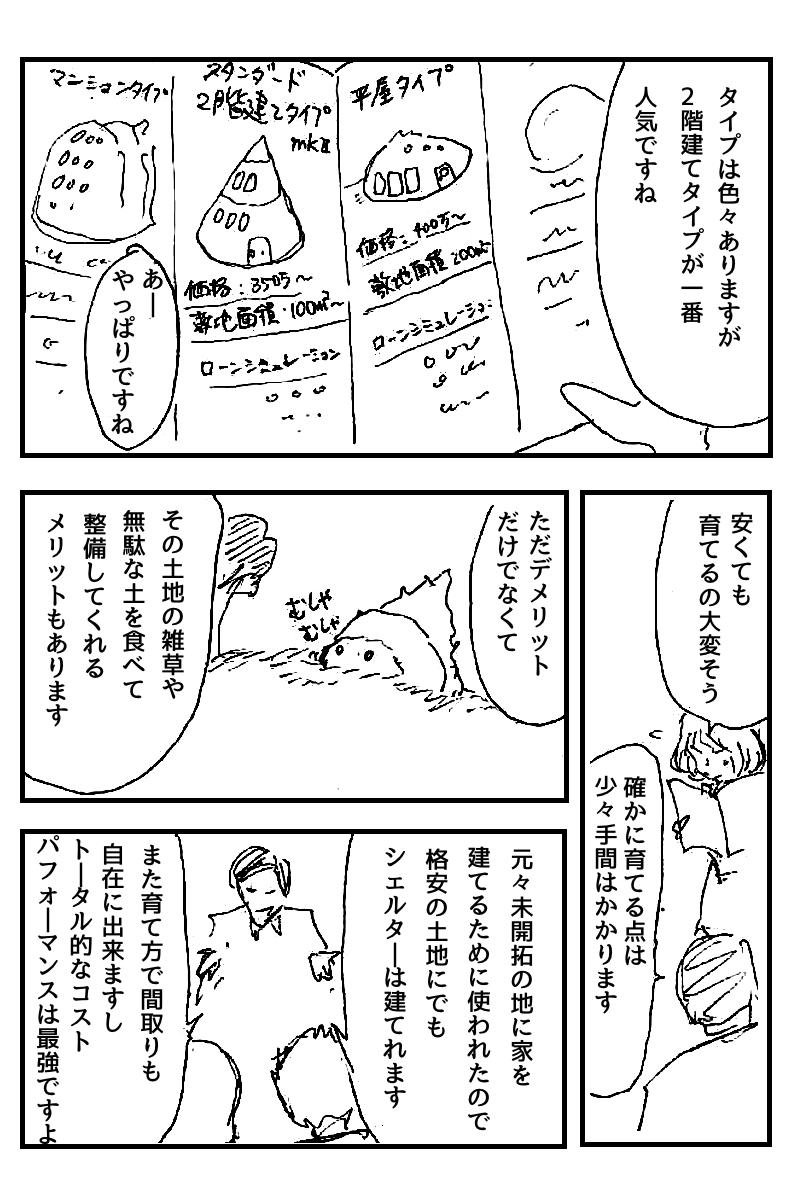 タイプは色々ありますが
2階建てタイプが一番
人気ですね
平屋タイプ
価格:400万〜
敷地面積 200m²
ローンシミュレーション
スタンダード
2階建てタイプ
mkⅡ
価格:350万〜
敷地面積・100m²〜
ローンシミュレーション
マンションタイプ
あー
やっぱりですね
安くても
育てるの大変そう
確かに育てる点は
少々手間はかかります
ただデメリット
だけでなくて
むしゃ
むしゃ
その土地の雑草や
無駄な土を食べて
整備してくれる
メリットもあります
元々未開拓の地に家を
建てるために使われたので
格安の土地にでも
シェルターは建てれます
また育て方で間取りも
自在に出来ますし
トータル的なコスト
パフォーマンスは最強ですよ